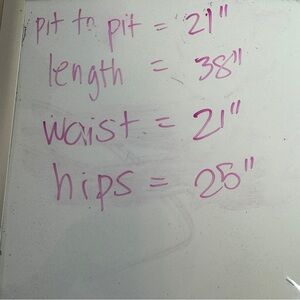 pit to pit = 21"
length = 38"
waist = 21"
hips = 25"